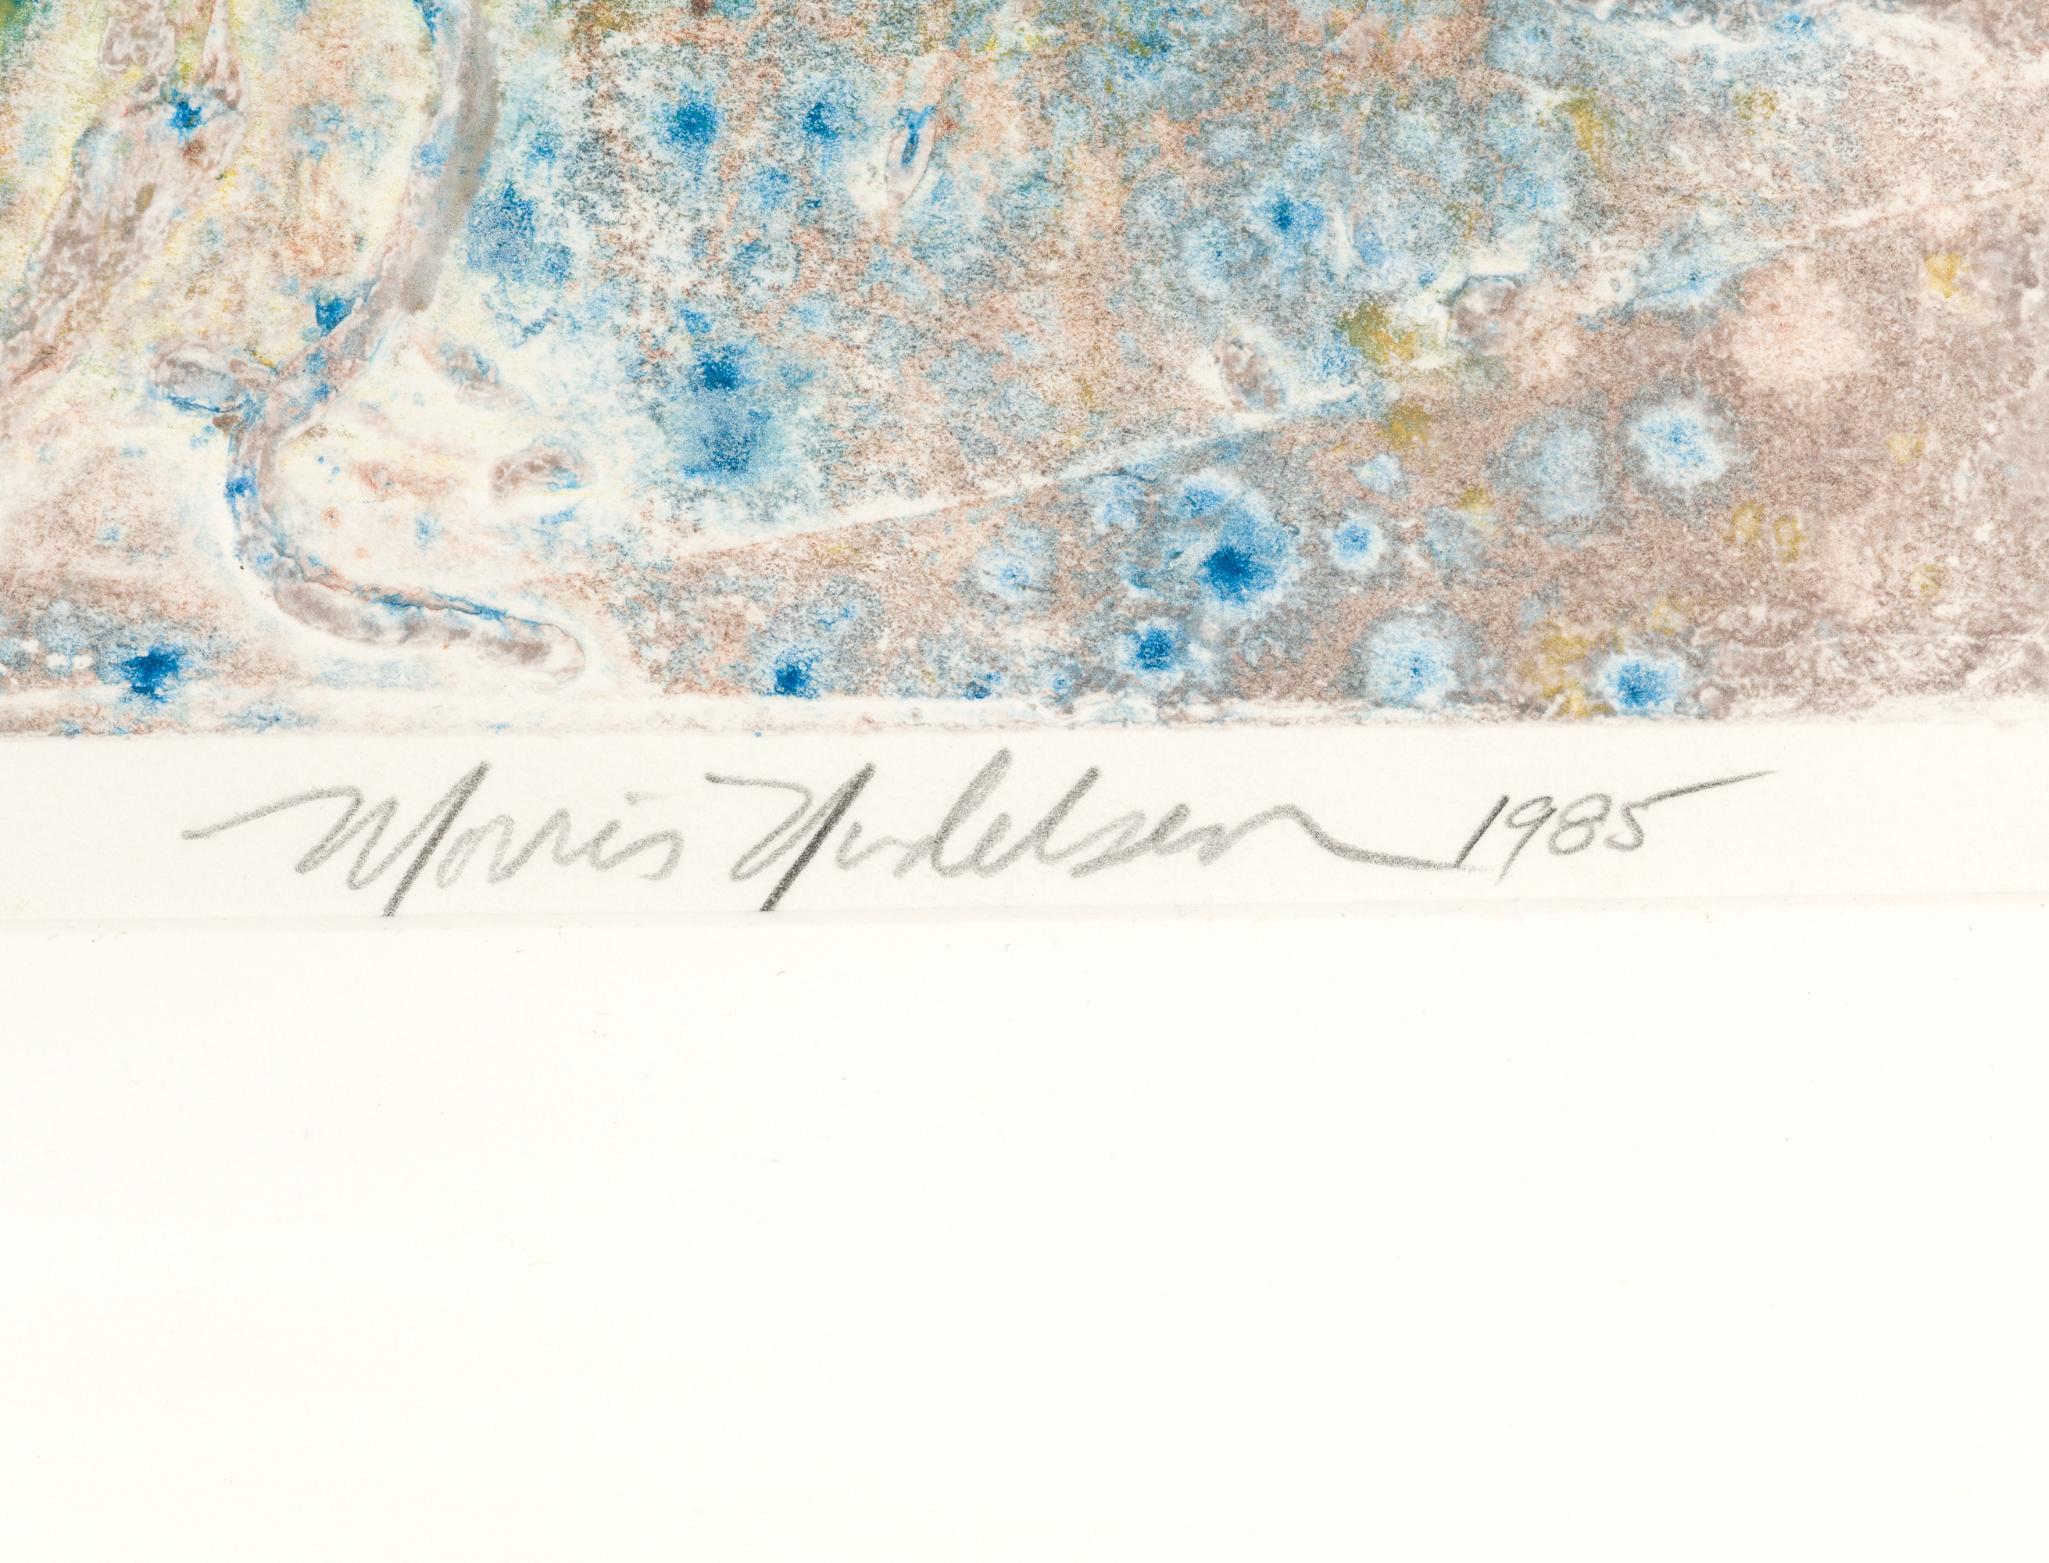 Morris Nudelsen 1985